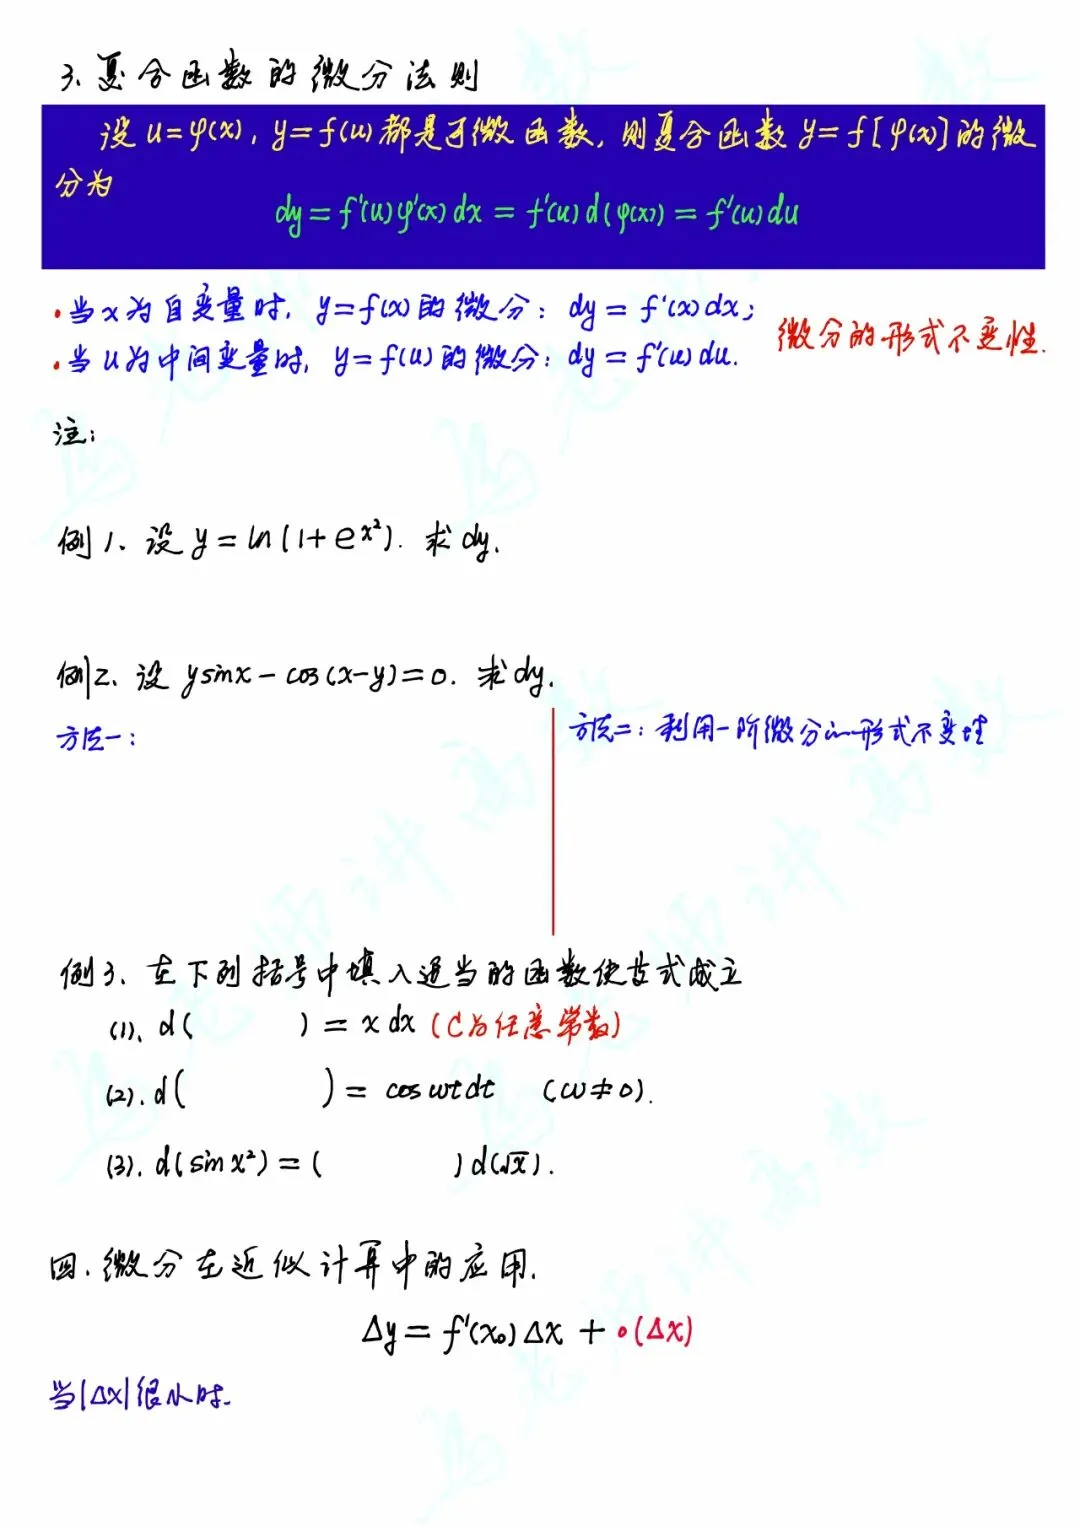 3、复合函数的微分法则
设 u=φ(x), y=f(u) 都是可微函数, 则复合函数 y=f[φ(x)] 的微
分为
dy=f'(u)φ'(x)dx=f'(u)d(φ(x))=f'(u)du
•当x为自变量时, y=f(x)的微分: dy=f'(x)dx;
•当u为中间变量时, y=f(u)的微分: dy=f'(u)du.
微分的形式不变性.
注:
例1、设 y=ln(1+e^{x²}). 求dy.
例2、设 ysinx-cos(x-y)=0. 求dy.
方法一:
方法二: 利用一阶微分的形式不变性
例3、在下列括号中填入适当的函数使其式成立
(1). d( )=xdx (C为任意常数)
(2). d( )=cosωtdt (ω≠0).
(3). d(sinx²)=( )d(√x).
四. 微分在近似计算中的应用.
Δy=f'(x₀)Δx+o(Δx)
当|Δx|很小时.
马老师讲高数
马老师讲高数
马老师讲高数